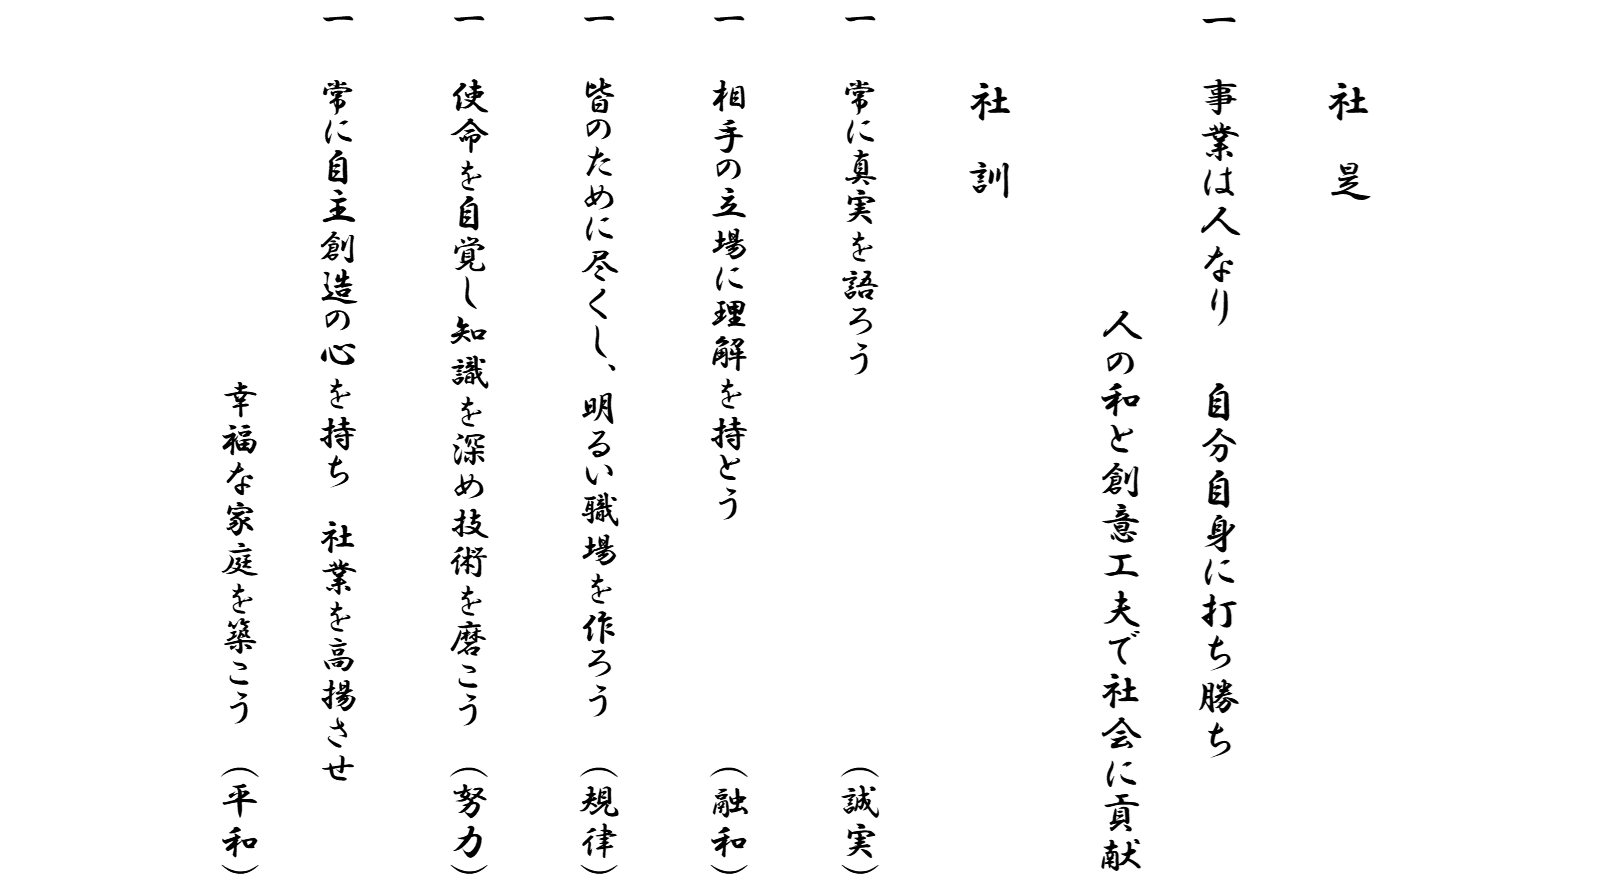 社　是
一　事業は人なり　自分自身に打ち勝ち
人の和と創意工夫で社会に貢献
社　訓
一　常に真実を語ろう　（誠実）
一　相手の立場に理解を持とう　（融和）
一　皆のために尽くし、明るい職場を作ろう　（規律）
一　使命を自覚し知識を深め技術を磨こう　（努力）
一　常に自主創造の心を持ち　社業を高揚させ
幸福な家庭を築こう　（平和）